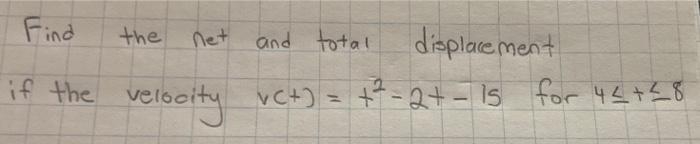 Find the net and total displacement
if the velocity v(t) = t² - 2t - 15 for 4 ≤ t ≤ 8